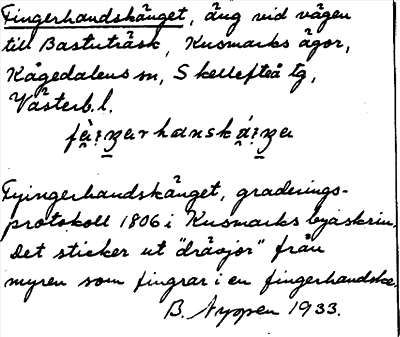 Fingerhandskänget, äng vid vägen
till Bastuträsk, Kusmarks ägor,
Kågedalens sn, Skellefteå tg,
Västerb.l.
Fyingerhandskänget, graderings-
protokoll 1806 i Kusmarks byaskrin.
Det sticker ut "dråsjor" från
myren som fingrar i en fingerhandske.
B. Nyppen 1933.